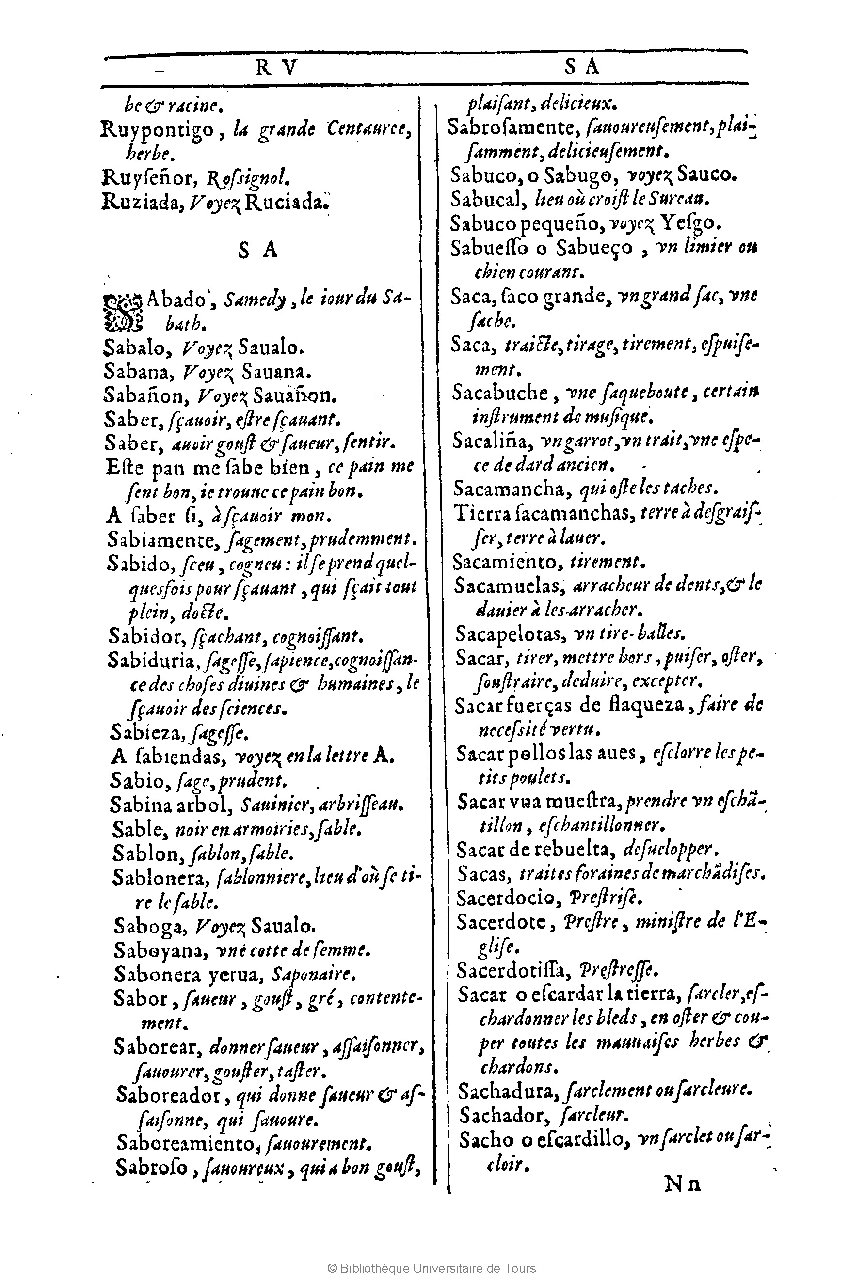 RV
SA
be & racine.
Ruypontigo, la grande Centauree,
herbe.
Ruyſeñor, Roſsignol.
Ruziada, Voyez Ruciada.
SA
SAbado, Samedy, le iour du Sa-
bath.
Sabalo, Voyez Saualo.
Sabana, Voyez Sauana.
Sabañon, Voyez Sauañon.
Saber, ſçauoir, eſtre ſçauant.
Saber, auoir gouſt & ſaueur, ſentir.
Eſte pan me ſabe bien, ce pain me
ſent bon, ie trouue ce pain bon.
A ſaber ſi, à ſçauoir mon.
Sabiamente, ſagement, prudemment.
Sabido, ſceu, cogneu : il ſe prend quel-
quesfois pour ſçauant, qui ſçait tout
plein, docte.
Sabidor, ſçachant, cognoiſſant.
Sabiduria, ſageſſe, ſapience, cognoiſſan-
ce des choſes diuines & humaines, le
ſçauoir des ſciences.
Sabieza, ſageſſe.
A ſabiendas, voyez en la lettre A.
Sabio, ſage, prudent.
Sabina arbol, Sauinier, arbriſſeau.
Sable, noir en armoiries, ſable.
Sablon, ſablon, ſable.
Sablonera, ſablonniere, lieu d'où ſe ti-
re le ſable.
Saboga, Voyez Saualo.
Saboyana, vne cotte de femme.
Sabonera yerua, Saponaire.
Sabor, ſaueur, gouſt, gré, contente-
ment.
Saborear, donner ſaueur, aſſaiſonner,
ſauourer, gouſter, taſter.
Saboreador, qui donne ſaueur & aſ-
ſaiſonne, qui ſauoure.
Saboreamiento, ſauourement.
Sabroſo, ſauoureux, qui a bon gouſt,
plaiſant, delicieux.
Sabroſamente, ſauoureuſement, plai-
ſamment, delicieuſement.
Sabuco, o Sabugo, voyez Sauco.
Sabucal, lieu où croiſt le Sureau.
Sabuco pequeño, voyez Yeſgo.
Sabueſſo o Sabueço, vn limier ou
chien courant.
Saca, ſaco grande, vn grand ſac, vne
ſache.
Saca, traicte, tirage, tirement, eſpuiſe-
ment.
Sacabuche, vne ſaqueboute, certain
inſtrument de muſique.
Sacaliña, vn garrot, vn trait, vne eſpe-
ce de dard ancien.
Sacamancha, qui oſte les taches.
Tierra ſacamanchas, terre à deſgraiſ-
ſer, terre à lauer.
Sacamiento, tirement.
Sacamuelas, arracheur de dents, & le
dauier à les arracher.
Sacapelotas, vn tire-balles.
Sacar, tirer, mettre hors, puiſer, oſter,
ſouſtraire, deduire, excepter.
Sacar fuerças de flaqueza, faire de
neceſsité vertu.
Sacar pollos las aues, eſclorre les pe-
tits poulets.
Sacar vna mueſtra, prendre vn eſchã-
tillon, eſchantillonner.
Sacar de rebuelta, deſuelopper.
Sacas, traites foraines de marchãdiſes.
Sacerdocio, Preſtriſe.
Sacerdote, Preſtre, miniſtre de l'E-
gliſe.
Sacerdotiſſa, Preſtreſſe.
Sacar o eſcardar la tierra, ſarcler, eſ-
chardonner les bleds, en oſter & cou-
per toutes les mauuaiſes herbes &
chardons.
Sachadura, ſarclement ou ſarcleure.
Sachador, ſarcleur.
Sacho o eſcardillo, vn ſarclet ou ſar-
cloir.
Nn
© Bibliothèque Universitaire de Tours